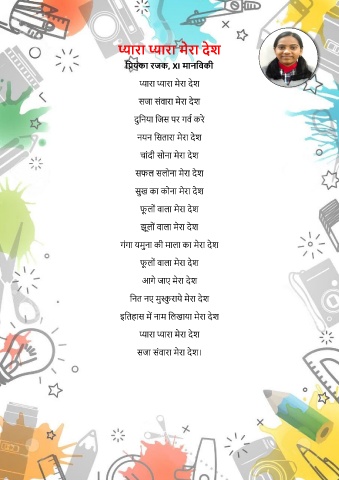 प्यारा प्यारा मेरा देश
प्रियंका रजक, XI मानविकी
प्यारा प्यारा मेरा देश
सजा संवारा मेरा देश
दुनिया जिस पर गर्व करे
नयन सितारा मेरा देश
चांदी सोना मेरा देश
सफल सलोना मेरा देश
सुख का कोना मेरा देश
फूलों वाला मेरा देश
झूलों वाला मेरा देश
गंगा यमुना की माला का मेरा देश
फूलों वाला मेरा देश
आगे जाए मेरा देश
नित नए मुस्कुराये मेरा देश
इतिहास में नाम लिखाया मेरा देश
प्यारा प्यारा मेरा देश
सजा संवारा मेरा देश।